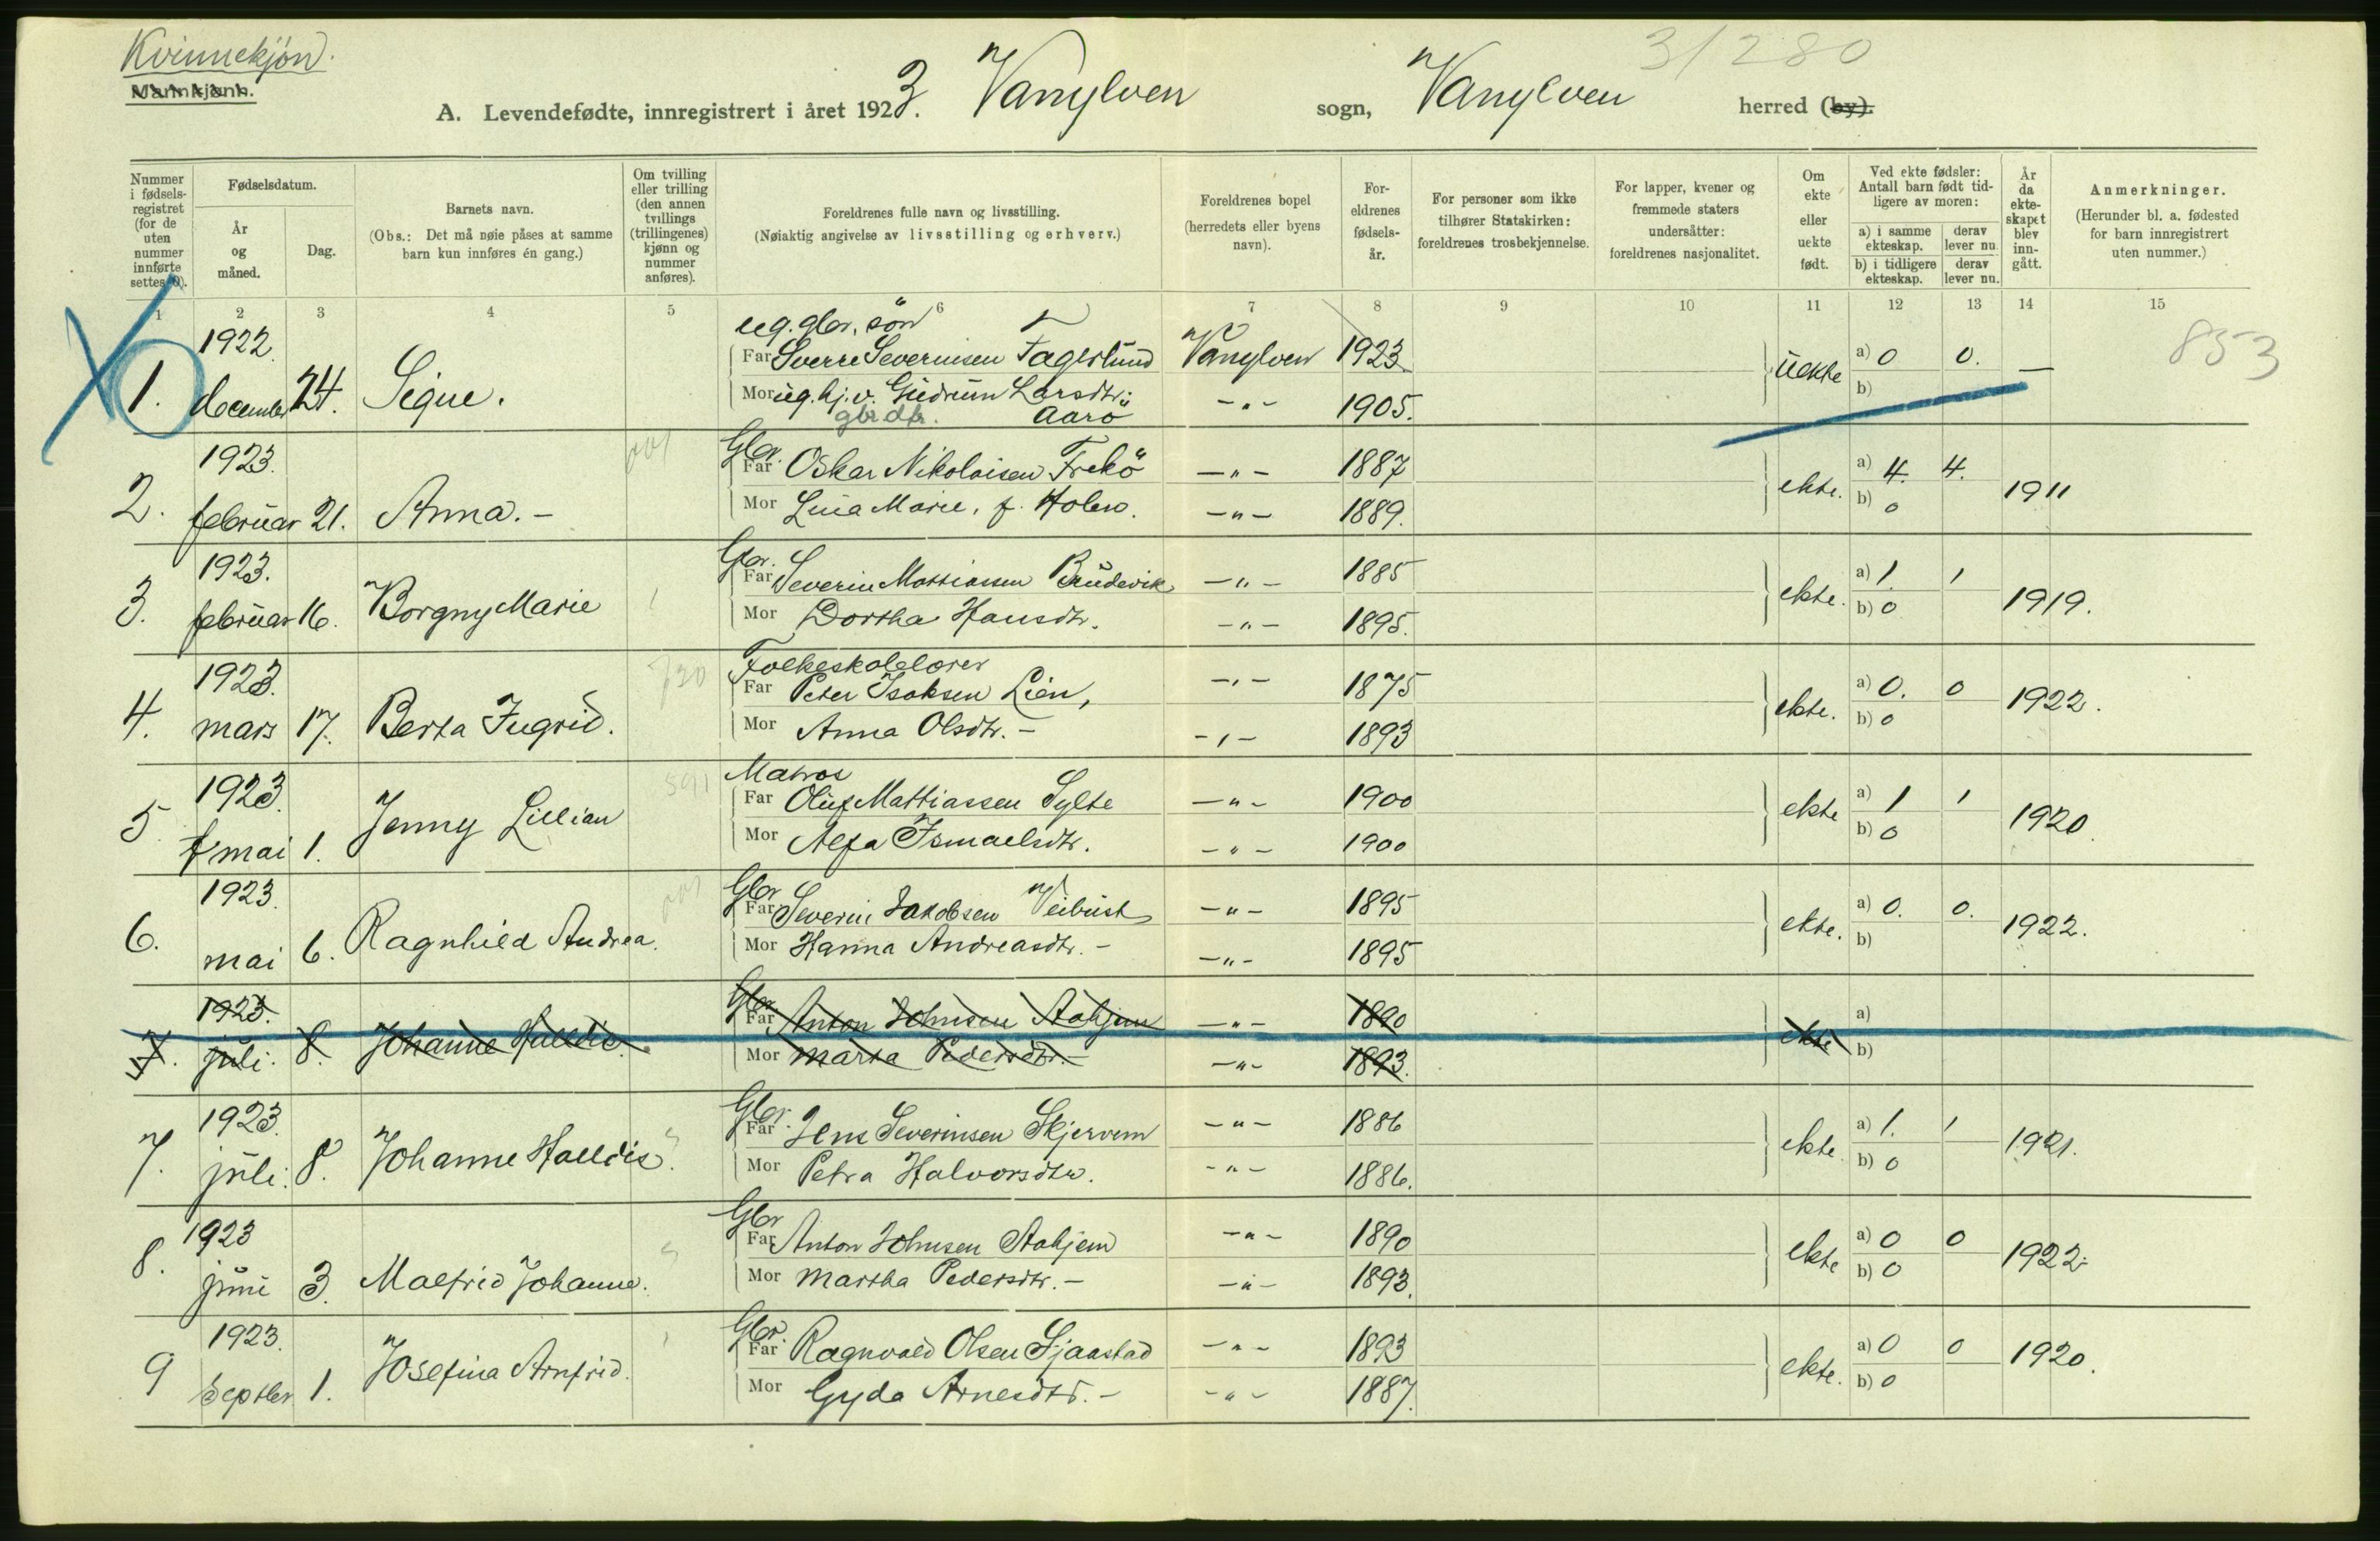 Kvinnekjön.
Mannkjønn.
31280
A. Levendefødte, innregistrert i året 1923. Vanylven sogn, Vanylven herred (by).
Nummer i fødselsregistret (for de uten nummer innførte settes 0).
Fødselsdatum.
År og måned.
Dag.
Barnets navn.
(Obs.: Det må nøie påses at samme barn kun innføres én gang.)
Om tvilling eller trilling (den annen tvillings (trillingenes) kjønn og nummer anføres).
Foreldrenes fulle navn og livsstilling.
(Nøiaktig angivelse av livsstilling og erhverv.)
Foreldrenes bopel (herredets eller byens navn).
Foreldrenes fødselsår.
For personer som ikke tilhører Statskirken: foreldrenes trosbekjennelse.
For lapper, kvener og fremmede staters undersåtter: foreldrenes nasjonalitet.
Om ekte eller uekte født.
Ved ekte fødsler: Antall barn født tidligere av moren:
a) i samme ekteskap. derav lever nu.
b) i tidligere ekteskap. derav lever nu.
År da ekteskapet blev inngått.
Anmerkninger.
(Herunder bl. a. fødested for barn innregistrert uten nummer.)
1 2 3 4 5 6 7 8 9 10 11 12 13 14 15
1. 1922 december 24. Signe.
ug. gbr. sön
Far Sverre Severinsen Fagerlund Vanylven 1923
Mor ug. hj. v. Gudrun Larsdtr. -"- 1905.
gbr. dtr. Aarö
uekte a) 0 0. — b)
853
2. 1923. februar 21. Anna. -
001
Gbr.
Far Oskar Nikolaisen Frekö -"- 1887
Mor Lina Marie, f. Holen. -"- 1889.
ekte. a) 4. 4. b) 0 1911
3. 1923. februar 16. Borgny Marie
1
Gbr.
Far Severin Mattiassen Brudevik -"- 1885
Mor Dortha Hansdtr. -"- 1895.
ekte. a) 1. 1 b) 0 1919.
4. 1923. mars 17. Berta Ingrid.
730
Folkeskolelærer
Far Peter Isaksen Lien, -"- 1875
Mor Anna Olsdtr. - -"- 1893
ekte. a) 0. 0 b) 0 1922.
5 1923. mai 1. Jenny Lillian
591
Matros
Far Oluf Mattiassen Sylte -"- 1900
Mor Alfa Ismaelsdtr. -"- 1900
ekte a) 1 1 b) 0 1920
6. 1923. mai 6. Ragnhild Andrea.
001
Gbr
Far Severin Jakobsen Veibust -"- 1895
Mor Hanna Andreasdtr. - -"- 1895
ekte. a) 0. 0. b) 1922.
7. 1923. juli. 8. Johanne Halldis.
Gbr
Far Anton Johnsen Aahjem -"- 1890
Mor Marta Pedersdtr. - -"- 1893.
ekte a) b)
7. 1923. juli. 8. Johanne Halldis.
Gbr.
Far Jens Severinsen Skjervem -"- 1886
Mor Petra Halvorsdtr. -"- 1886.
ekte. a) 1. 1 b) 0 1921.
8. 1923 juni 3. Malfrid Johanne.
Gbr
Far Anton Johnsen Aahjem -"- 1890
Mor Martha Pedersdtr. - -"- 1893.
ekte a) 0 0 b) 0 1922.
9 1923. septbr 1. Josefina Arnfrid.
Gbr.
Far Ragnvald Olsen Sjaastad -"- 1893
Mor Gyda Arnesdtr. - -"- 1887.
ekte. a) 0 0 b) 0 1920.